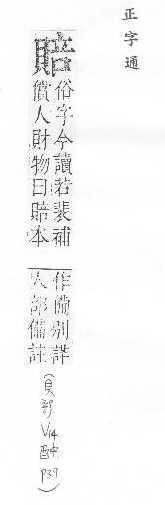 正字通
賠
俗字今讀若裴補
償人財物曰賠本
作備別詳
人部備註
(貝部 V14 P39)